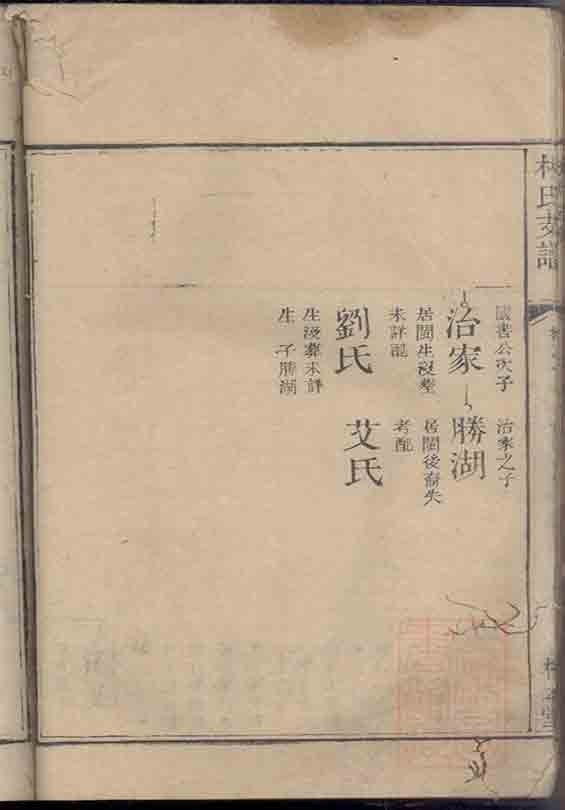 林氏支譜
國書公次子
治家
居閩生歿塟
未詳配
劉氏
生歿葬未詳
生子勝湖
治家之子
勝湖
居閩後裔失
考配
艾氏